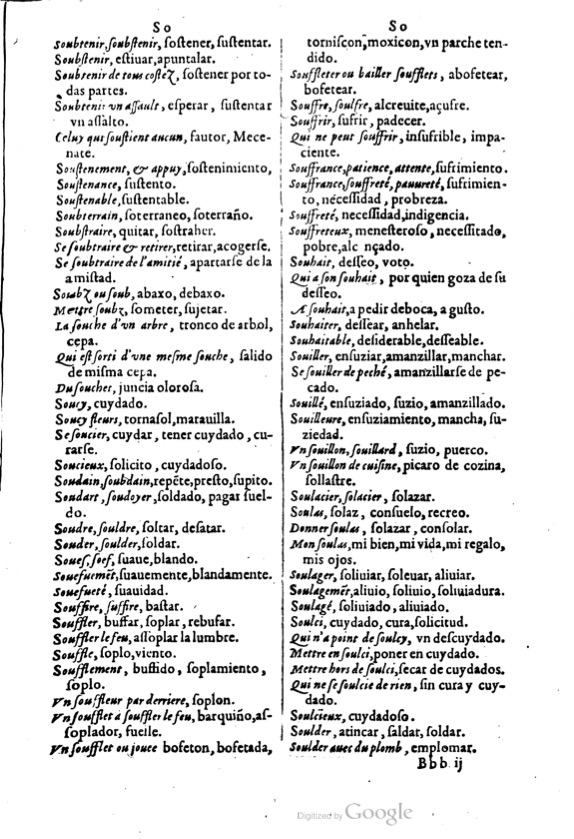 So
Soubtenir, soubstenir, sostener, sustentar.
Soubstenir, estiuar, apuntalar.
Soubtenir de tous costez, sostener por to-
das partes.
Soubtenir vn assault, esperar, sustentar
vn assalto.
Celuy qui soustient aucun, fautor, Mece-
nate.
Soustenement, & appuy, sostenimiento,
Soustenance, sustento.
Soustenable, sustentable.
Soubterrain, soterraneo, soterraño.
Soubstraire, quitar, sostraher.
Se soubtraire & retirer, retirar, acogerse.
Se soubtraire de l'amitié, apartarse de la
amistad.
Soubz ou soub, abaxo, debaxo.
Mettre soubz, someter, sujetar.
La souche d'vn arbre, tronco de arbol,
cepa.
Qui est sorti d'vne mesme souche, salido
de misma cepa.
Du souchet, juncia olorosa.
Soucy, cuydado.
Soucy fleurs, tornasol, marauilla.
Se soucier, cuydar, tener cuydado, cu-
rarse.
Soucieux, solicito, cuydadoso.
Soudain, soubdain, repēte, presto, supito.
Soudart, soudoyer, soldado, pagar suel-
do.
Soudre, souldre, soltar, desatar.
Souder, soulder, soldar.
Souef, soef, suaue, blando.
Souefuemēt, suauemente, blandamente.
Souefueté, suauidad.
Souffire, suffire, bastar.
Souffler, buffar, soplar, rebufar.
Souffler le feu, assoplar la lumbre.
Souffle, soplo, viento.
Soufflement, buffido, soplamiento,
soplo.
Vn souffleur par derriere, soplon.
Vn soufflet à souffler le feu, barquiño, as-
soplador, fuelle.
Vn soufflet ou jouee bofeton, bofetada,
So
torniscon, moxicon, vn parche ten-
dido.
Souffleter ou bailler soufflets, abofetear,
bofetear.
Souffre, soulfre, alcreuite, açufre.
Souffrir, sufrir, padecer.
Qui ne peut souffrir, insufrible, impa-
ciente.
Souffrance, patience, attente, sufrimiento.
Souffrance, souffreté, pauureté, sufrimien-
to, nécessidad, probreza.
Souffreté, necessidad, indigencia.
Souffreteux, menesteroso, necessitado,
pobre, alc nçado.
Souhait, desseo, voto.
Qui a son souhait, por quien goza de su
desseo.
A souhait, a pedir deboca, a gusto.
Souhaiter, dessear, anhelar.
Souhaitable, desiderable, desseable.
Souiller, ensuziar, amanzillar, manchar.
Se souiller de peché, amanzillarse de pe-
cado.
Souillé, ensuziado, suzio, amanzillado.
Souilleure, ensuziamiento, mancha, su-
ziedad.
Vn souillon, souillard, suzio, puerco.
Vn souillon de cuisine, picaro de cozina,
sollastre.
Soulacier, solacier, solazar.
Soulas, solaz, consuelo, recreo.
Donner soulas, solazar, consolar.
Mon soulas, mi bien, mi vida, mi regalo,
mis ojos.
Soulager, soliuiar, soleuar, aliuiar.
Soulagemēt, aliuio, soliuio, soliuiadura.
Soulagé, soliuiado, aliuiado.
Soulci, cuydado, cura, solicitud.
Qui n'a point de soulcy, vn descuydado.
Mettre en soulci, poner en cuydado.
Mettre hors de soulci, secar de cuydados.
Qui ne se soulcie de rien, sin cura y cuy-
dado.
Soulcieux, cuydadoso.
Soulder, atincar, saldar, soldar.
Soulder auec du plomb, emplomar.
Bbb ij
Digitized by Google